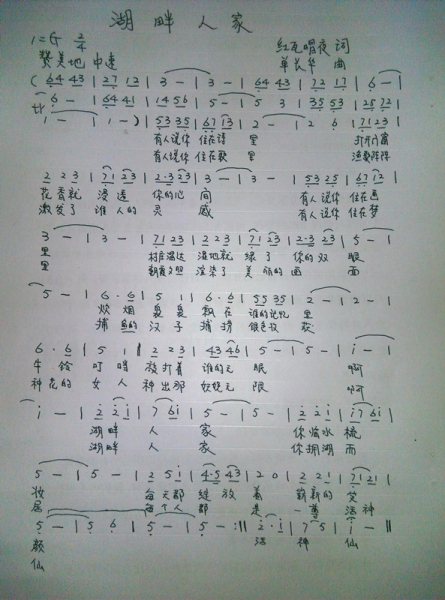 湖畔人家
1=G 2/4 红瓦唱夜 词
赞美地 中速 单长华 曲
( 64 43 | 27 12 | 3 - | 3 - | 64 43 | 72 17 | 6 - |
6 - | 64 41 | 14 56 | 5 - | 5 3 | 35 53 | 25 72 |
1 - | 1 - ) | 53 35 | 67 13 | 2 - | 2 6 | 71 23 |
有人说你 住在诗 里 打开门窗
有人说你 住在歌 里
2 2 3 | 71 23 | 2·3 23 | 3 - | 3 - | 53 25 | 67 12 |
花香就 漫进 你的心 间 有人说你 住在画
激发了 谁人的 灵 感 有人说你 住在梦
3 - | 3 - | 71 23 | 2 2 3 | 71 23 | 2·3 23 | 5 - |
里 湿地就 绿了 你的双 眼
里 朝霞夕照 渲染了 美丽的 画 面
5 - | 6·6 | 5 5 | 6·6 | 55 35 | 2 - | 2 - |
炊烟 袅袅 飘在 谁的记忆 里
捕鱼的 汉子 捕捞 银色收 获
6·6 | 5 1 | 2 2 3 | 43 46 | 5 - | 5 - | i - |
牛铃 叮当 谁的无 眠 啊
种花的 女人 种出那 妖娆无 限 啊
i - | 2 2 i | 7 6i | 5 - | 5 - | 2 2 i | i7 6i |
湖畔 人 家 你临水 梳
湖畔 人 家 你拥湖 而
5 - | 5 - | 2 5 i | 4·5 43 | 2 0 | 2 2 1 | 71 21 |
妆 每天都 绽放 着 崭新的 笑
居 每个人 都 是 一尊 活神
5 - | 5 6 | 5 - | 5 - :|| 2·i | 7 5 | i - ||
颜 活 神 仙
仙